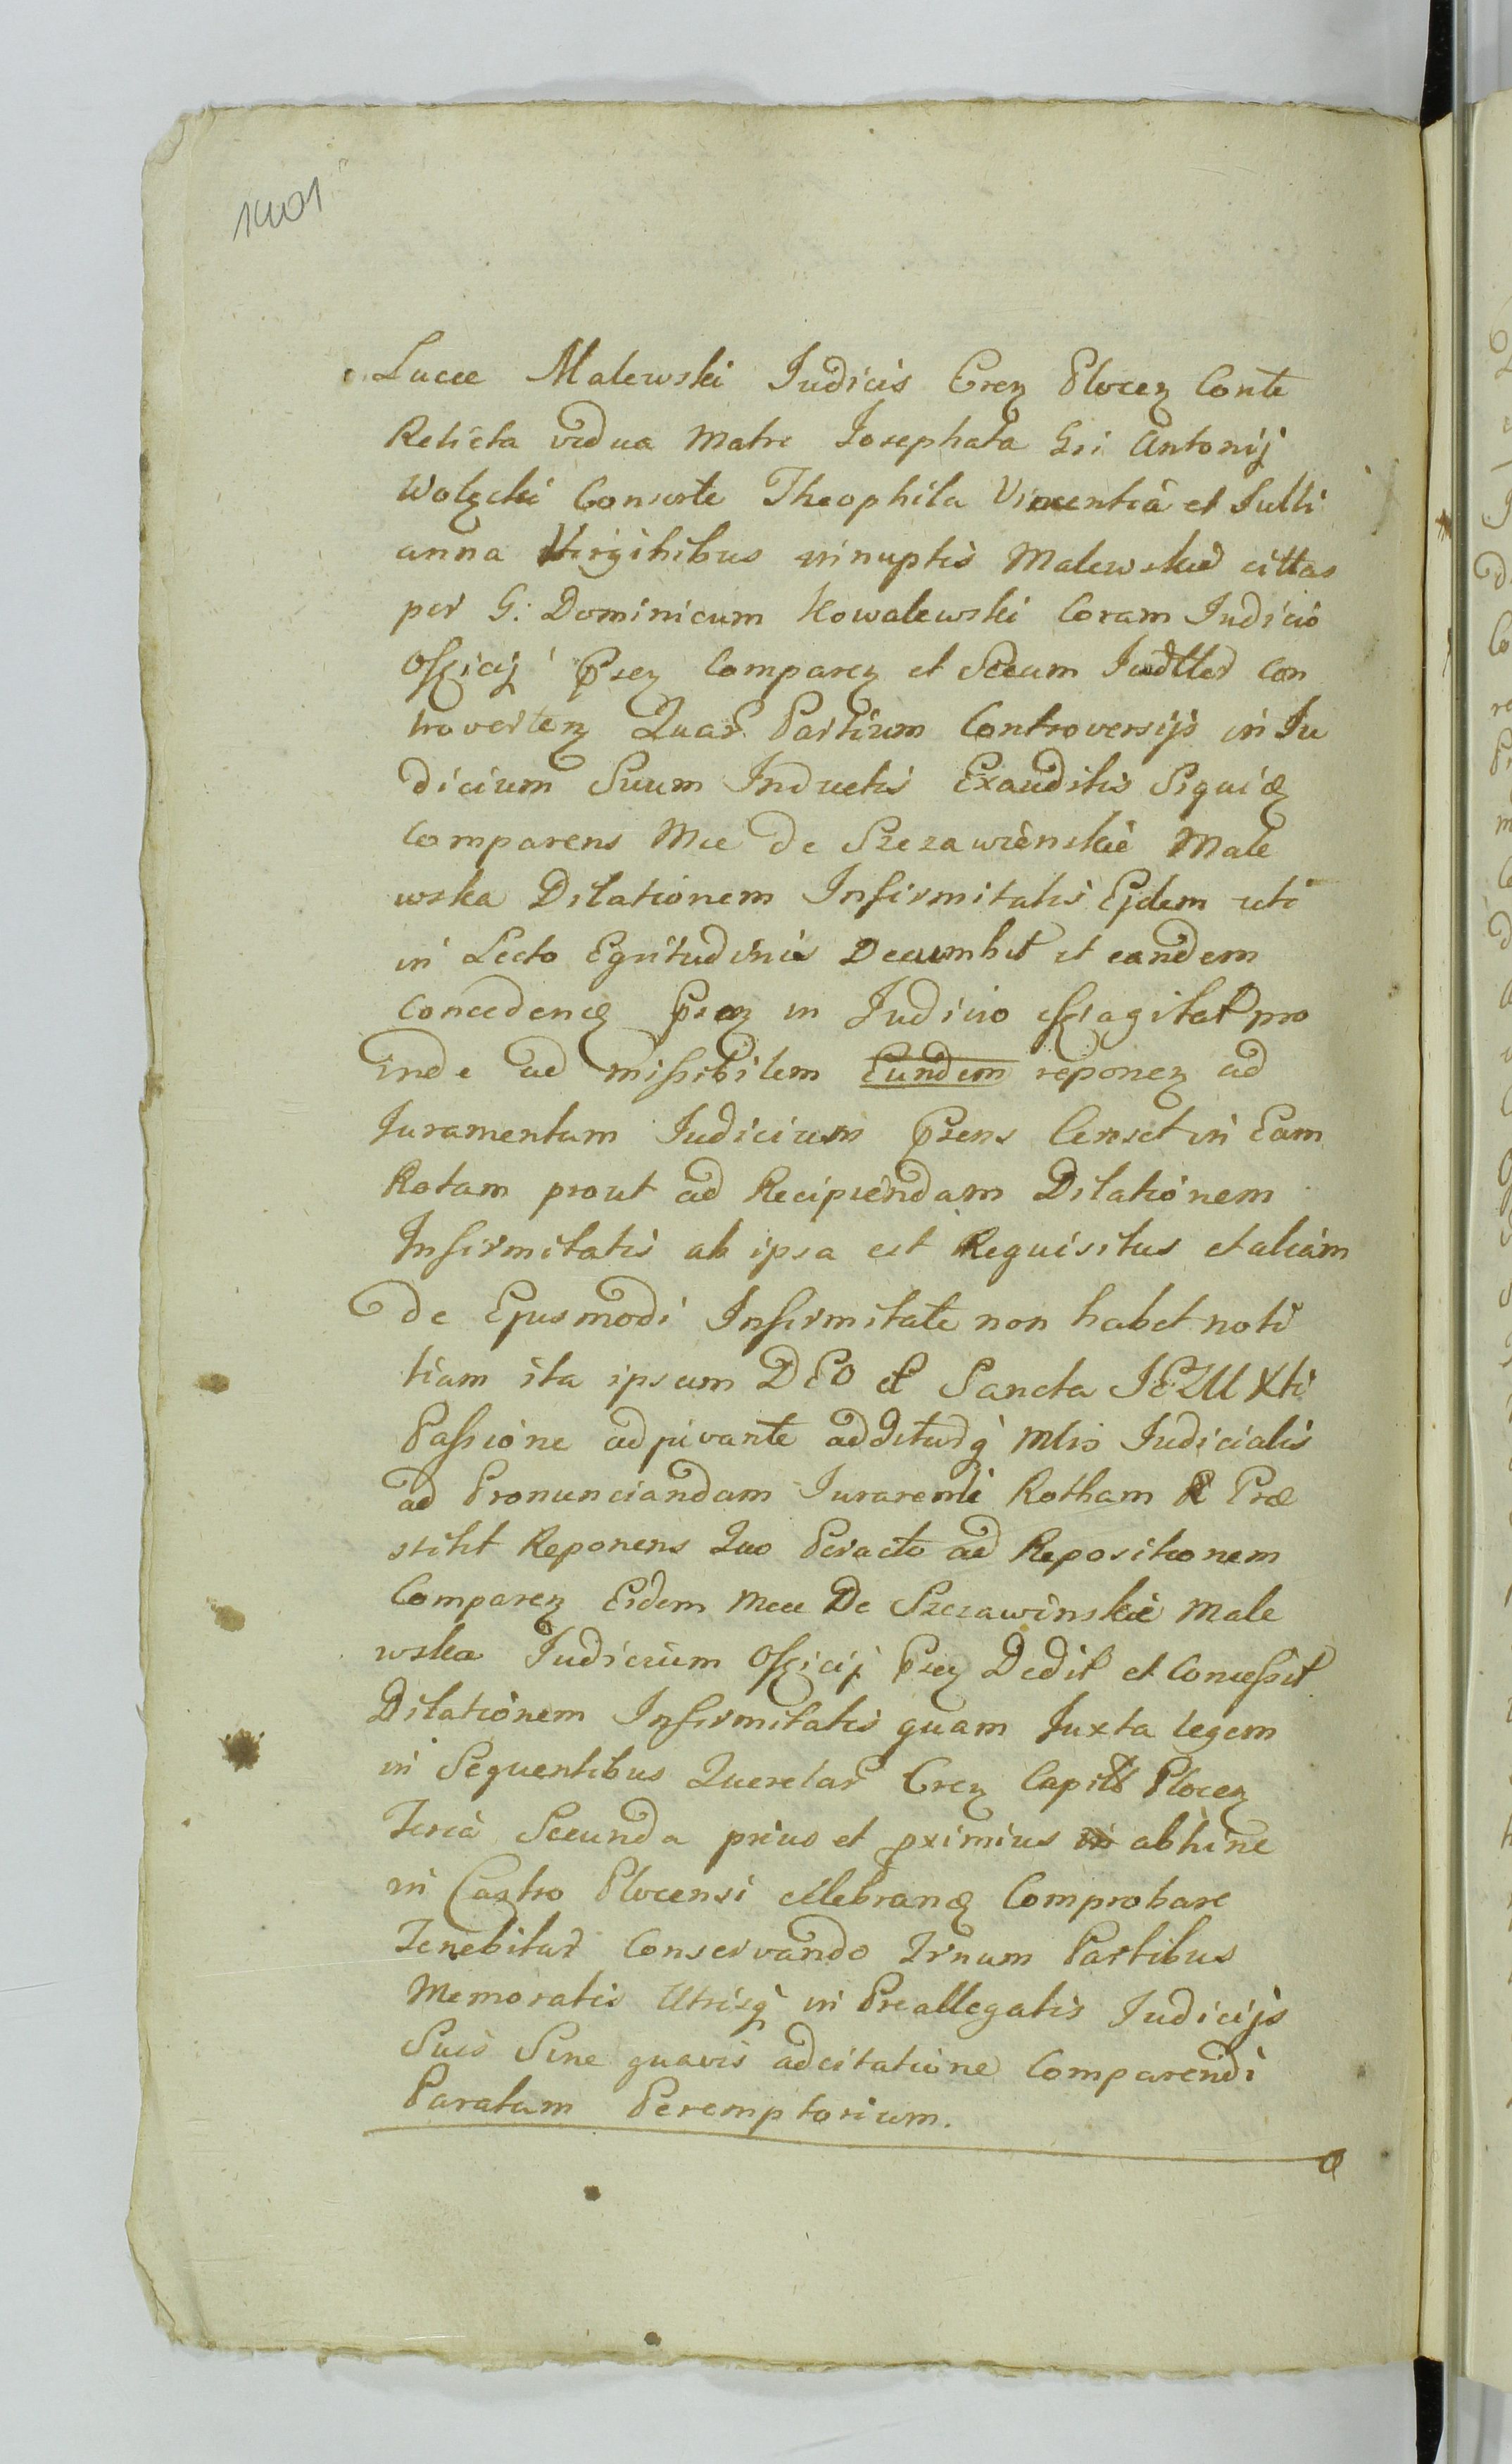 1401
Lucæ Malewski Judicis Crez Plocez Conte
Relicta vidua Matre Josephata Gsi Antonij
Wolęcki Consorte Theophila Vincentia et Julli
anna Virginibus innuptis Malewskie cittas
per G: Dominicum Kowalewski Coram Judicio
Officij Psez Comparez et Secum Judtter Con
trovertez Quar Partium Controversijs in Ju
dicium Suum Inductis Exauditis Siquid
Comparens Mce de Szczawienskie Male
wska Dilationem Infirmitatis Ejdem uti
in Lecto Egritudinis Decumbit et eandem
Concedend Psez in Judicio efflagitat pro
inde admissibilem Eundem reponez ad
Juramentum Judicium Psens Censet in Eam
Rotam prout ad Recipiendam Dilationem
Infirmitatis ab ipsa est Requisitus et aliam
de Ejusmodi Infirmitate non habet noti
tiam ita ipsum DEO et Sancta JEZU Xti
Passione adjuvante additurq Mlis Judicialis
ad Pronunciandam Juramenti Rotham Præ
stitit Reponens Quo Peracto ad Repositionem
Comparez Eidem Mcæ De Szczawinskie Male
wska Judicium Officij Psez Dedit et Concessit
Dilationem Infirmitatis quam Juxta legem
in Sequentibus Querelar Crez Capits Plocez
Feria Secunda prius et pximius abhinc
in Castro Plocensi celebrand Comprobare
Tenebitur Conservando Trnum Partibus
Memoratis Utrisq in Preallegatis Judicijs
Suis Sine quavis adcitatione Comparendi
Paratum Peremptorium.